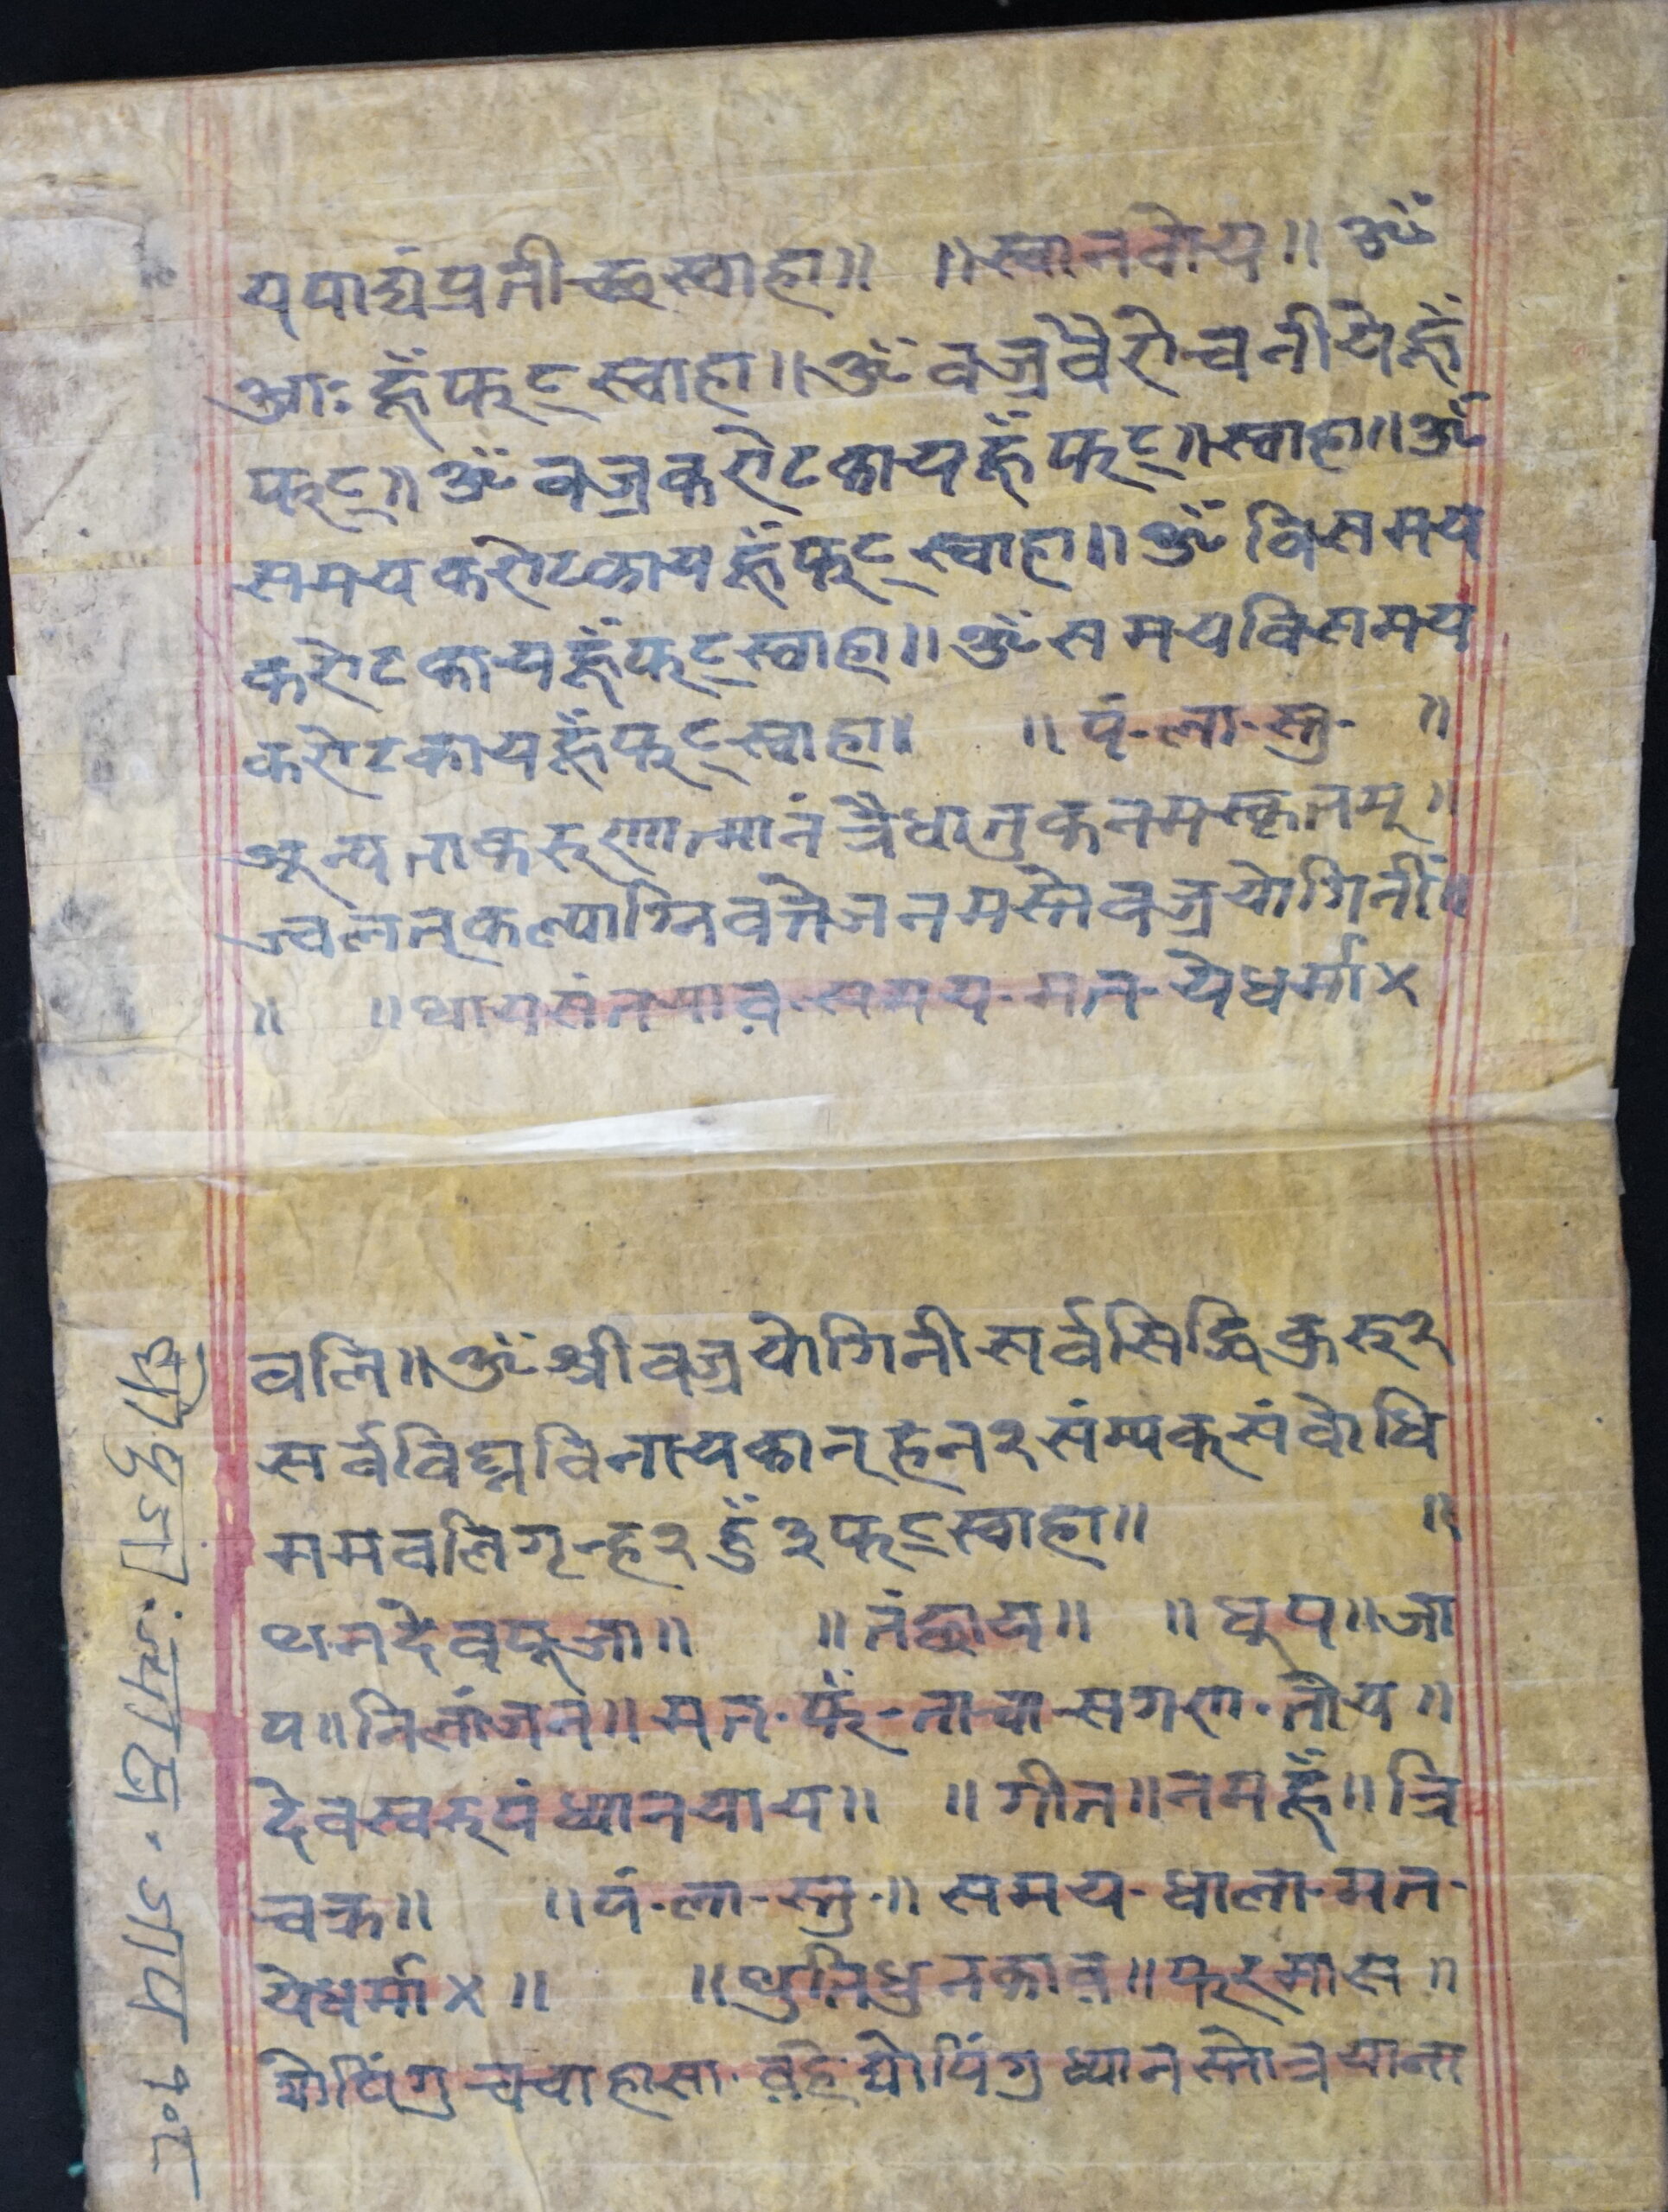 य पाद्यंप्रतीच्छस्वाहा॥ ॥स्वानबोय॥ ॐ
आः हूँ फट् स्वाहा॥ ॐ वज्रवैरोचनीये हूँ
फट्॥ ॐ वज्रकरोटकाय हूँ फट्॥ स्वाहा॥ ॐ
समयकरोटकाय हूँ फट् स्वाहा॥ ॐ विसमय
करोटकाय हूँ फट् स्वाहा॥ ॐ समयविसमय
करोटकाय हूँ फट् स्वाहा॥ ॥ पं·ला·स्तु· ॥
शून्यताकरुणात्मानं त्रैधातुकनमस्कृतम्॥
ज्वलत्कल्पाग्निवत्तेज नमस्ते वज्रयोगिनीं॥
॥ ॥ समय·मत·येधर्मा×
वलि॥ ॐ श्रीवज्रयोगिनी सर्वसिद्धि कुरु२
सर्वविघ्नविनायकान् हन२ संम्यक्संबोधि
ममवलिगृन्ह२ हुँ३ फट् स्वाहा॥ ॥
थनदेवपूजा॥ ॥ ॥ धुप॥ जा
प॥ निलांजनं॥ मत·फं·ताचा·सगण·तोय॥
देवस्वरुपं ध्यानयाय॥ ॥गीत॥ नमहूँ॥ त्रि
चक्र॥ ॥पं·ला·स्तु·॥ समय·धाला·मत·
येधर्मा×॥ ॥ ॥
ध्यानस्तोत्रयाना